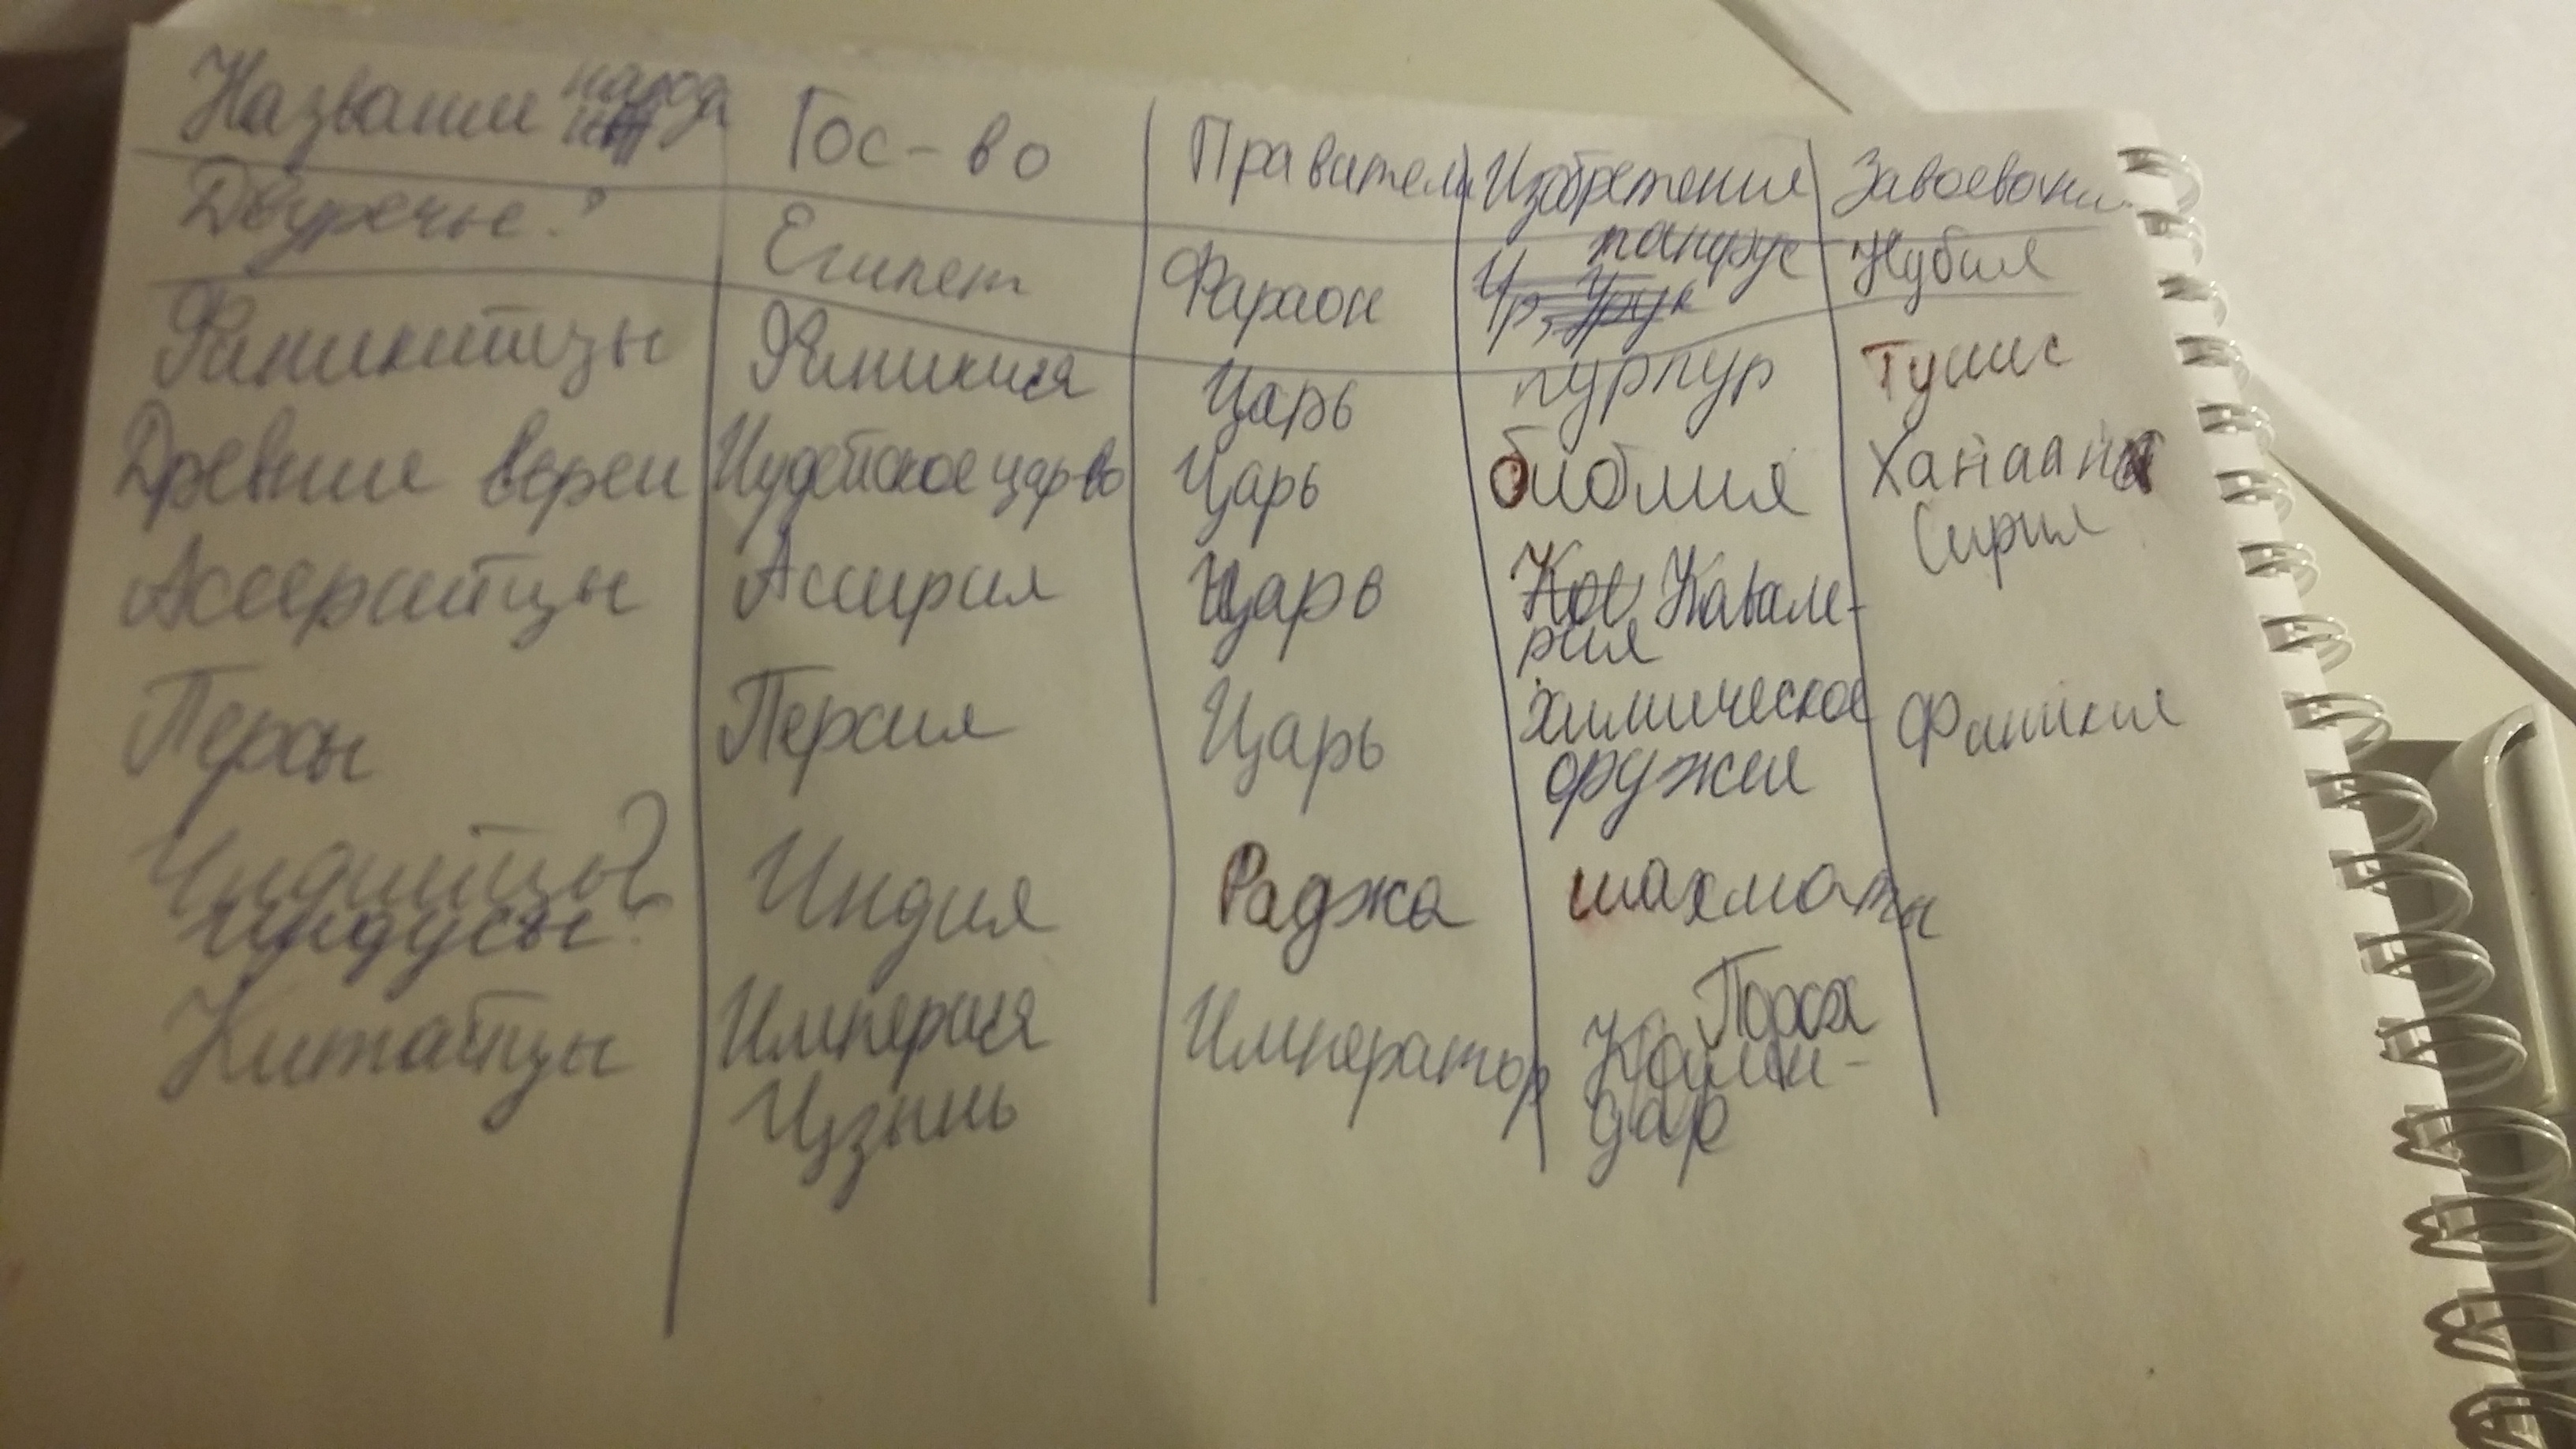 Названи народа Гос-во Правители Изобретения Завоевани
Двуречье? Египет Фараон папирус Нубия
Ур, Урук
Финикийцы Финикия Царь пурпур Тунис
Древние евреи Иудейское цар-во Царь библия Ханаан
Ассирийцы Ассирия Царь Кавале- Сирия
рия
Персы Персия Царь химическое Финикия
оружия
Индийцы? Индия Раджа шахматы
индусы?
Китайцы Империя Император
Цзынь дар